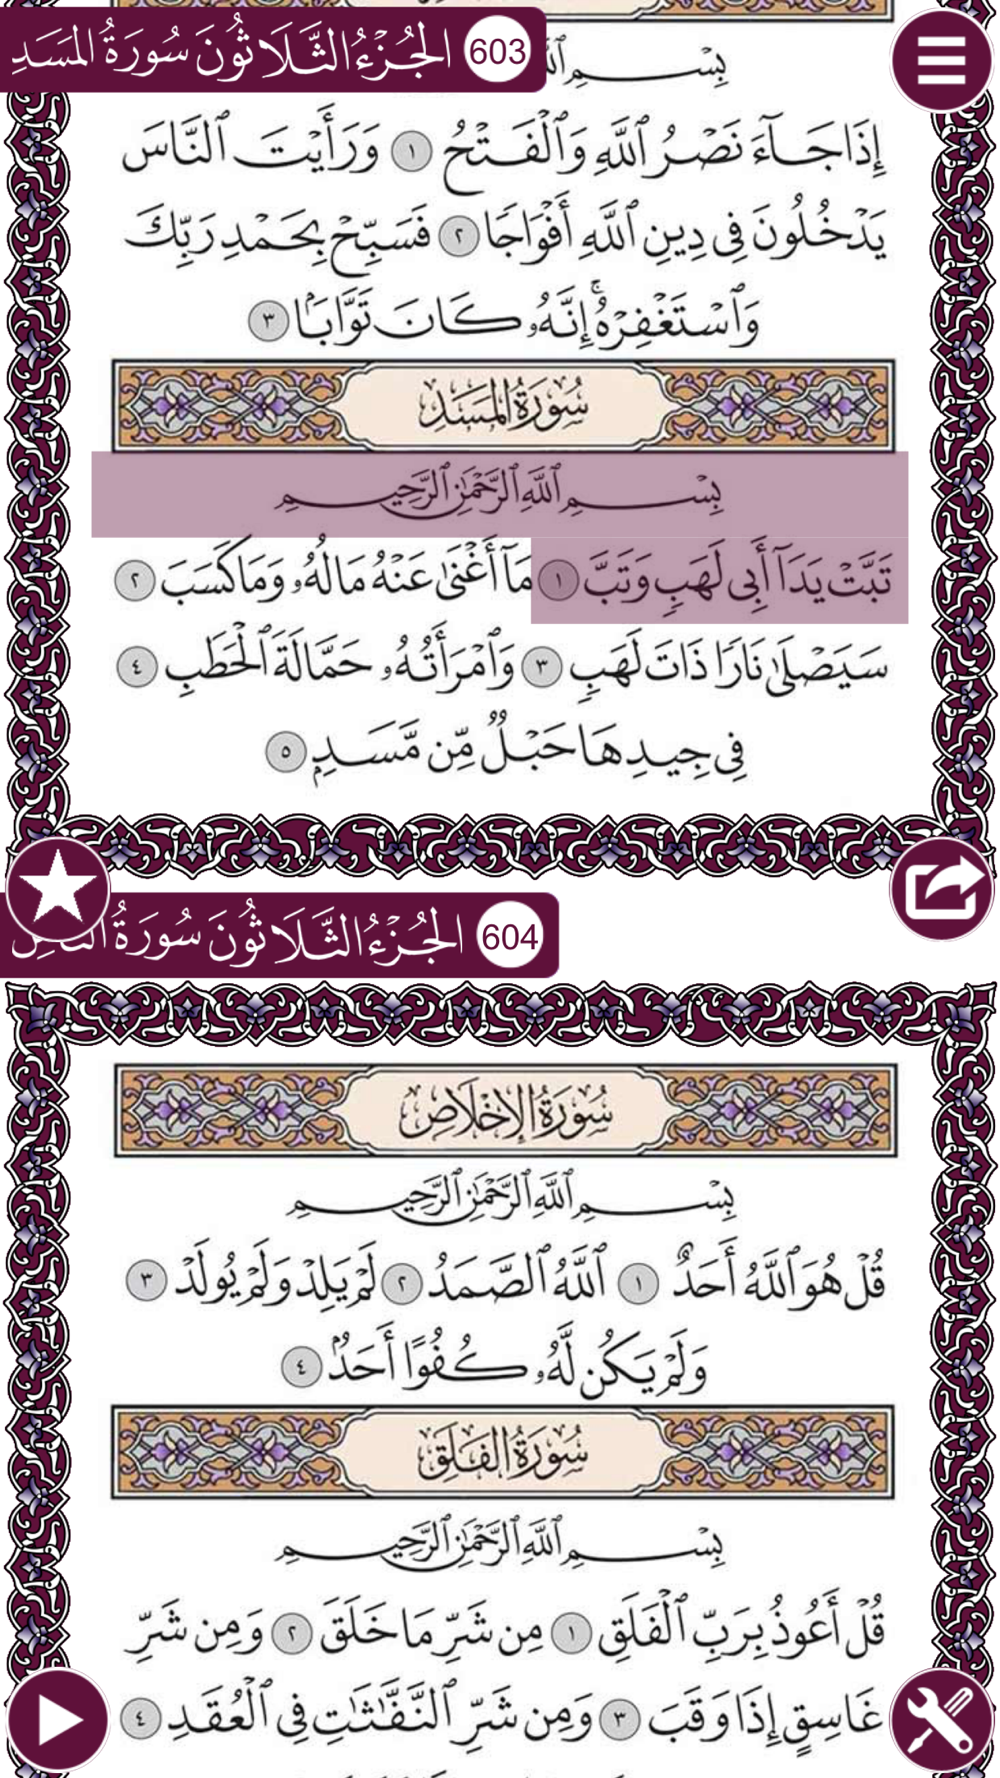 603 الجُزْءُ الثَّلَاثُونَ سُورَةُ المَسَدِ
بِسْمِ ٱللَّهِ
إِذَا جَآءَ نَصْرُ ٱللَّهِ وَٱلْفَتْحُ ١ وَرَأَيْتَ ٱلنَّاسَ
يَدْخُلُونَ فِي دِينِ ٱللَّهِ أَفْوَاجًا ٢ فَسَبِّحْ بِحَمْدِ رَبِّكَ
وَٱسْتَغْفِرْهُ ۚ إِنَّهُۥ كَانَ تَوَّابًۢا ٣
سُورَةُ المَسَدِ
بِسْمِ ٱللَّهِ ٱلرَّحْمَٰنِ ٱلرَّحِيمِ
تَبَّتْ يَدَآ أَبِي لَهَبٍ وَتَبَّ ١ مَآ أَغْنَىٰ عَنْهُ مَالُهُۥ وَمَا كَسَبَ ٢
سَيَصْلَىٰ نَارًا ذَاتَ لَهَبٍ ٣ وَٱمْرَأَتُهُۥ حَمَّالَةَ ٱلْحَطَبِ ٤
فِي جِيدِهَا حَبْلٌ مِّن مَّسَدٍۭ ٥
604 الجُزْءُ الثَّلَاثُونَ سُورَةُ النَّاسِ
سُورَةُ الإِخْلَاصِ
بِسْمِ ٱللَّهِ ٱلرَّحْمَٰنِ ٱلرَّحِيمِ
قُلْ هُوَ ٱللَّهُ أَحَدٌ ١ ٱللَّهُ ٱلصَّمَدُ ٢ لَمْ يَلِدْ وَلَمْ يُولَدْ ٣
وَلَمْ يَكُن لَّهُۥ كُفُوًا أَحَدٌۢ ٤
سُورَةُ الفَلَقِ
بِسْمِ ٱللَّهِ ٱلرَّحْمَٰنِ ٱلرَّحِيمِ
قُلْ أَعُوذُ بِرَبِّ ٱلْفَلَقِ ١ مِن شَرِّ مَا خَلَقَ ٢ وَمِن شَرِّ
غَاسِقٍ إِذَا وَقَبَ ٣ وَمِن شَرِّ ٱلنَّفَّٰثَٰتِ فِي ٱلْعُقَدِ ٤